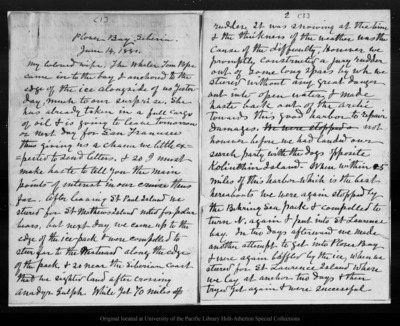 (1)
Plover Bay, Siberia
June 14, 1881.
My beloved wife. The Whaler Tom Pope
came in to the bay & anchored to the
edge of the ice alongside of us yester
day, much to our surprise. She
has already taken in a full cargo
of oil & is going to leave tomorrow
or next day for San Francisco
thus giving us a chance we little ex-
pected to send letters, & so I must
make haste to tell you the main
points of interest in our cruise thus
far. After leaving St Paul Island we
steered for St Mathews Island noted for polar
bears, but next day we came up to the
edge of the ice-pack & were compelled to
steer far to the Westward along the edge
of the pack & so near the Siberian coast
that we sighted land after crossing
Anadyr Gulph. While yet 70 miles off
2 (1)
rudder. It was snowing at the time
& the thickness of the weather was the
cause of the difficulty. However we
promptly constructed a jury rudder
out of some long spars by which we
steered without any great danger
out into open water, & made
haste back out of the arctic
towards this good harbor to repair
damages. We were stopped not
however before we had landed our
search party with the dogs opposite
Koliuchin Island. When within 85
miles of this harbor which is the best
hereabouts we were again stopped by
the Behring sea pack & compelled to
turn N. again & put into St Lawrence
bay. In two days afterward we made
another attempt to get into Plover Bay
& were again baffled by the ice, when we
steered for St Lawrence Island where
we lay at anchor two days & then
tryed yet again & were successful
Original located at University of the Pacific Library Holt-Atherton Special Collections